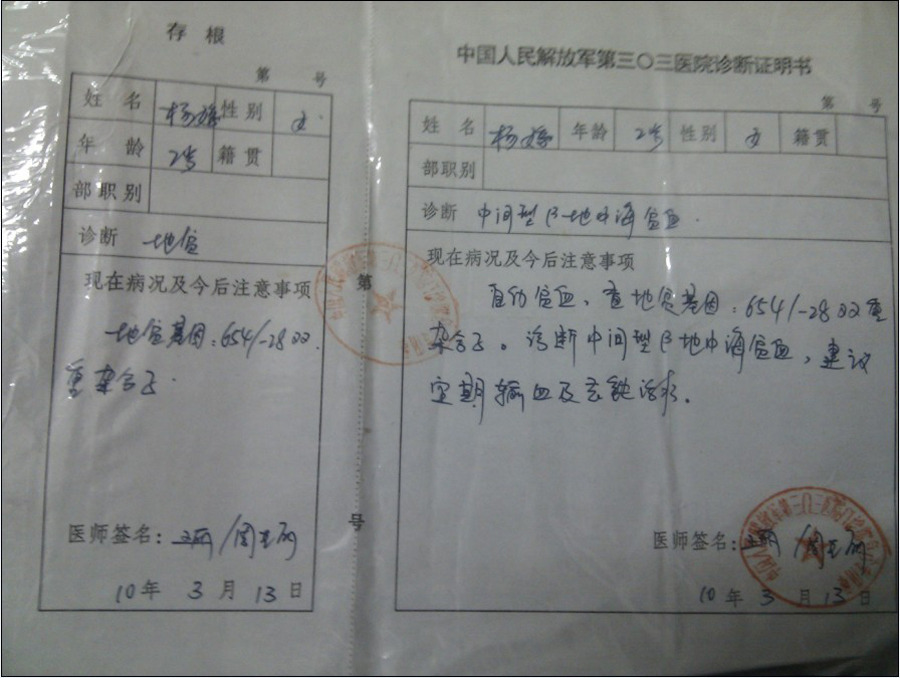 存根
第 号
姓名 杨 性别 女
年龄 2岁 籍贯
部职别
诊断 地贫
现在病况及今后注意事项
地贫基因：654/-28双
重杂合子.
医师签名： /周
10年 3月 13日
第
号
中国人民解放军第三〇三医院诊断证明书
第 号
姓名 杨 年龄 2岁 性别 女 籍贯
部职别
诊断 中间型β地中海贫血.
现在病况及今后注意事项
自幼贫血、查地贫基因：654/-28双重
杂合子。诊断中间型β地中海贫血，建议
定期输血及去铁治疗。
医师签名： /周
10年 3月 13日